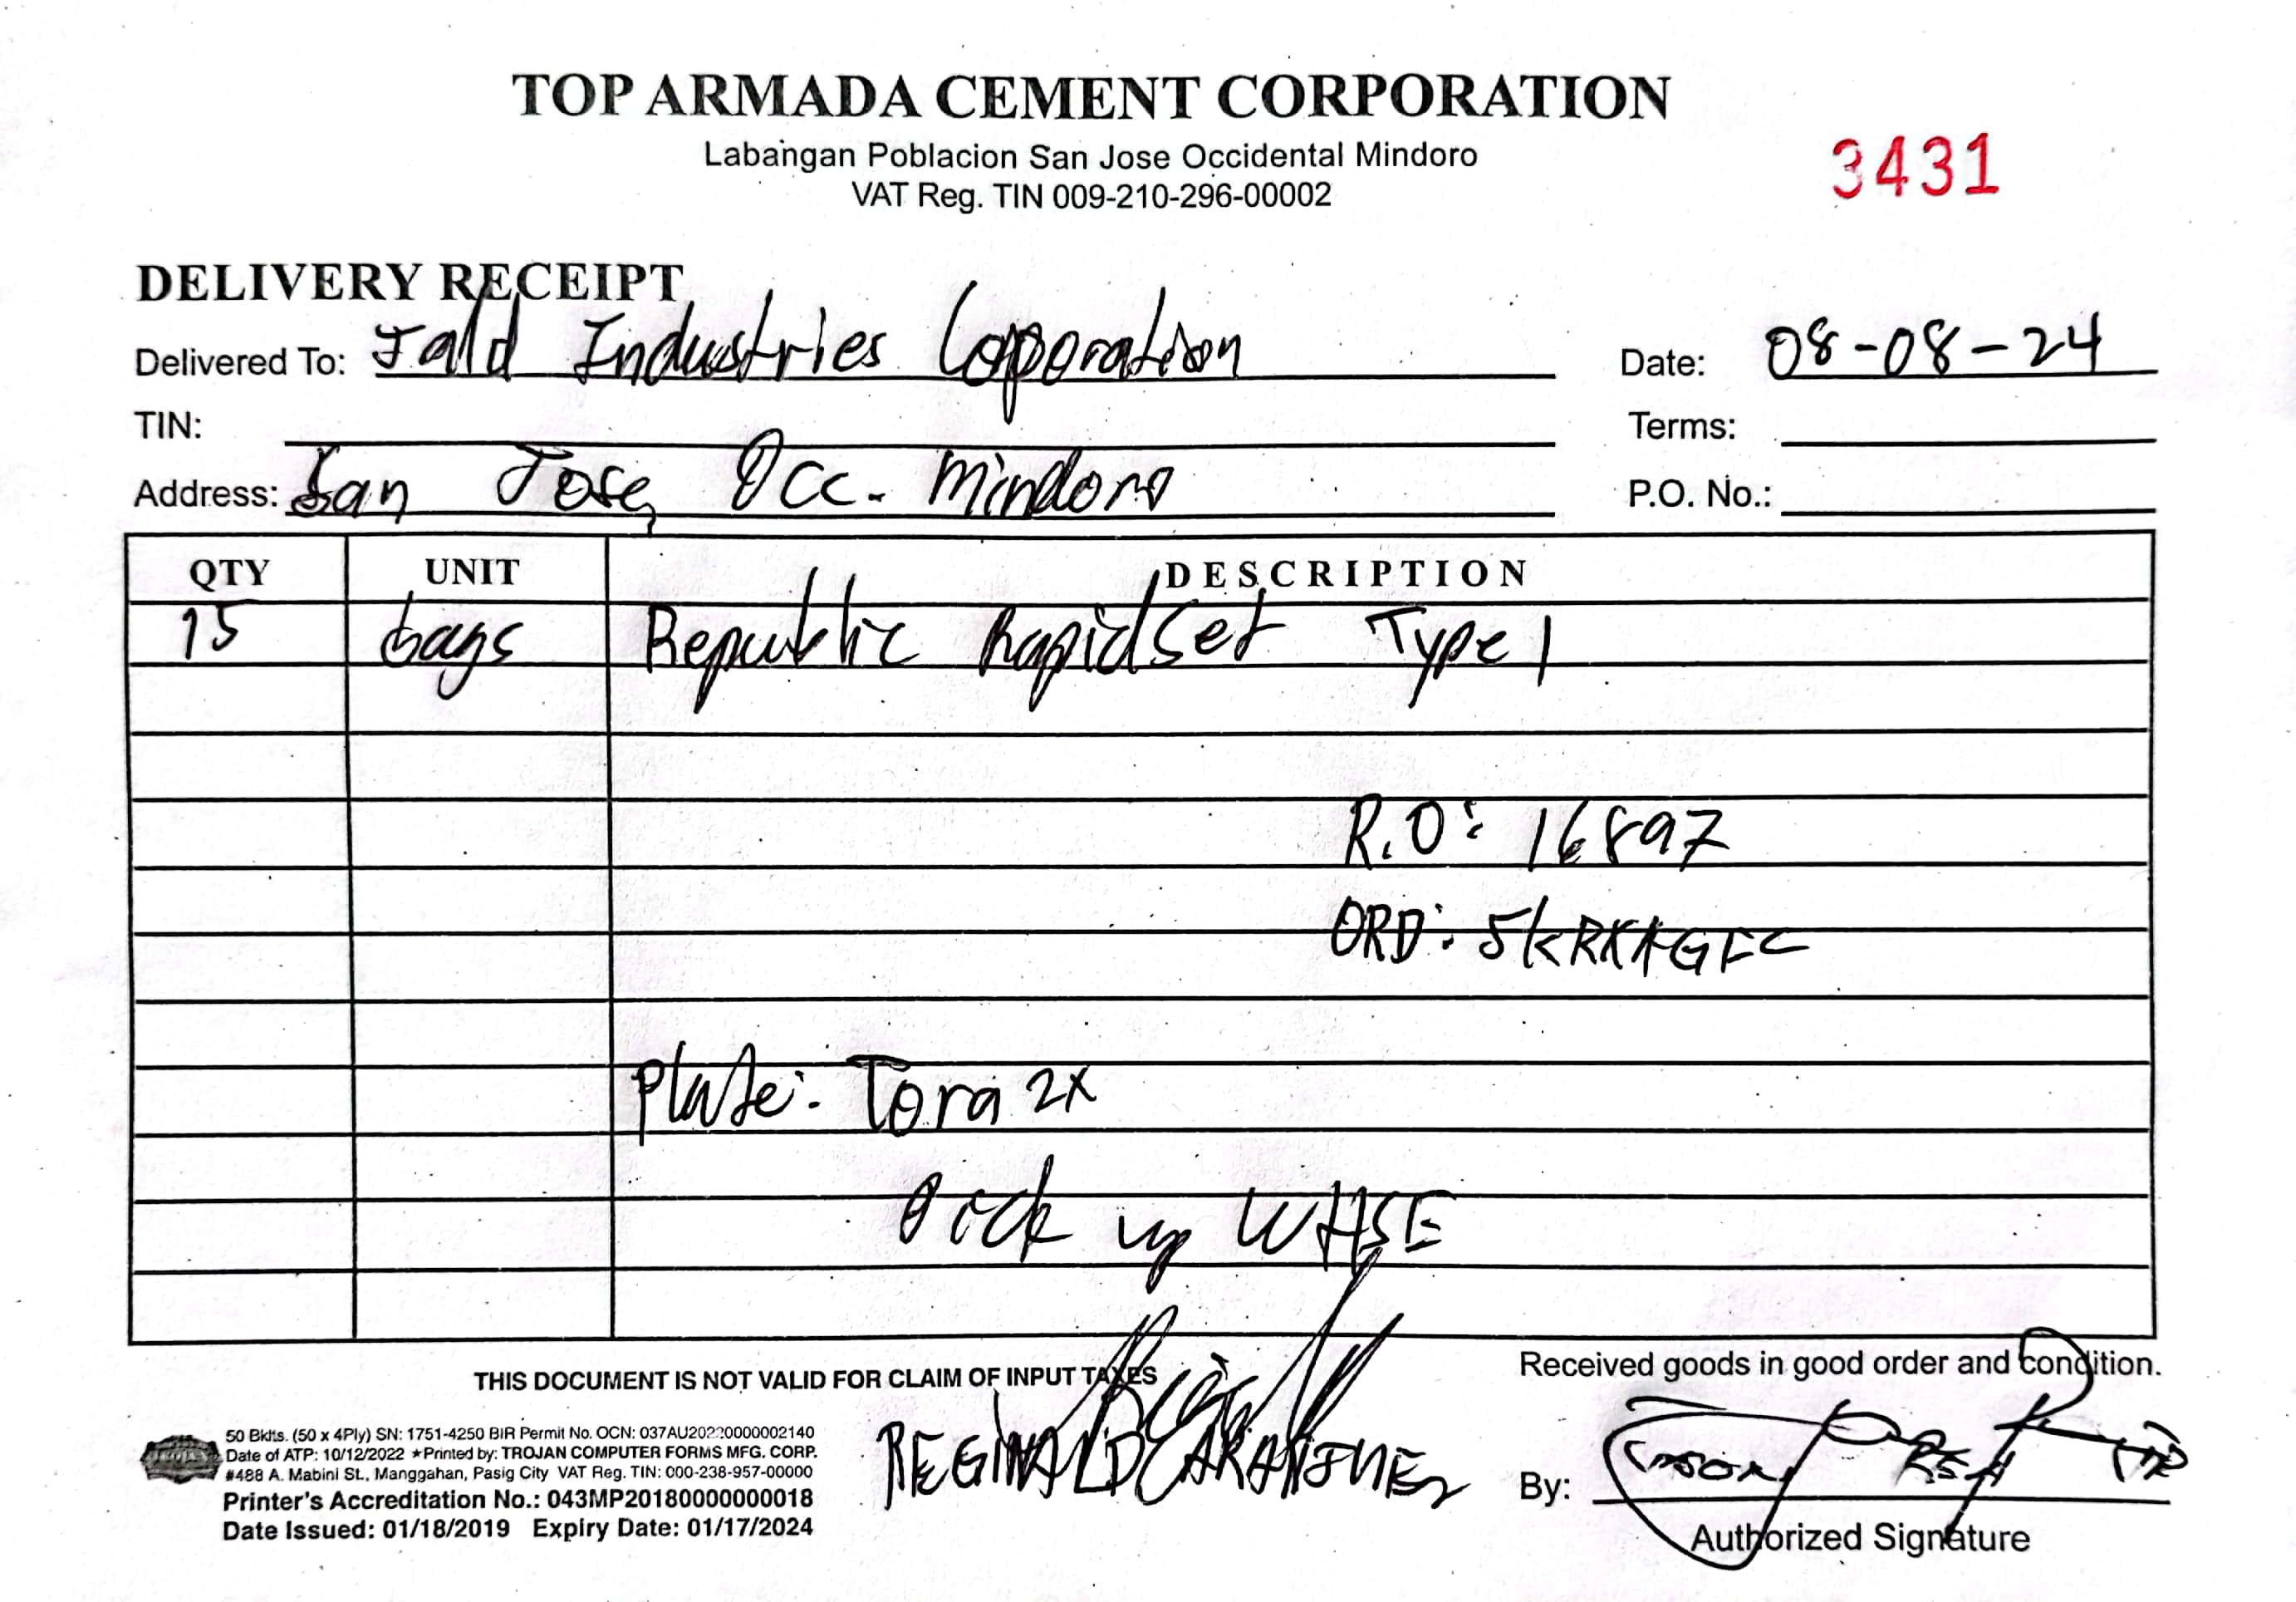 TOP ARMADA CEMENT CORPORATION
Labangan Poblacion San Jose Occidental Mindoro
VAT Reg. TIN 009-210-296-00002
3431
DELIVERY RECEIPT
Delivered To: Jald Industries Coporation
Date: 08-08-24
TIN:
Terms:
Address: San Jose, Occ. Mindoro
P.O. No.:
QTY UNIT DESCRIPTION
15 bags Republic RapidSet Type 1
R.O: 16897
ORD: 5KRKAGFC
Plate: Tora 2x
Pick up WHSE
THIS DOCUMENT IS NOT VALID FOR CLAIM OF INPUT TAXES
Received goods in good order and condition.
50 Bklts. (50 x 4Ply) SN: 1751-4250 BIR Permit No. OCN: 037AU20220000002140
Date of ATP: 10/12/2022 ★Printed by: TROJAN COMPUTER FORMS MFG. CORP.
#488 A. Mabini St., Manggahan, Pasig City VAT Reg. TIN: 000-238-957-00000
Printer's Accreditation No.: 043MP20180000000018
Date Issued: 01/18/2019 Expiry Date: 01/17/2024
REGINALD
By:
Authorized Signature